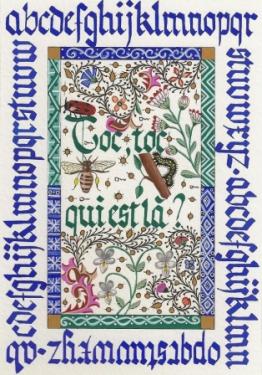 abcdefghijklmnopqr
stuvwxyz-abcdefghijklmn
opqrstuvwxyz-ab
cdefghijklmnopqrstuvw
Toc, toc
qui est là ?